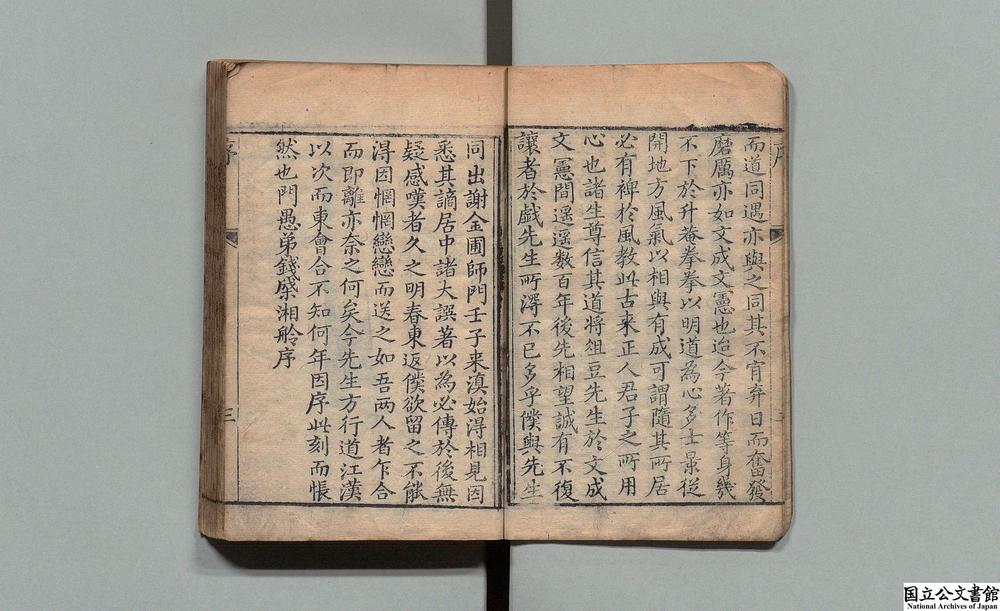 而道同遇亦與之同其不肯弃日而奮發
磨厲亦如文成文憲也迨今著作等身幾
不下於升菴拳拳以明道為心多士景從
開地方風氣以相與有成可謂隨其所居
必有裨於風教此古来正人君子之所用
心也諸生尊信其道將俎豆先生於文成
文憲間遥遥数百年後先相望誠有不復
讓者於戲先生所得不已多乎僕與先生
同出謝金圃師門壬子来滇始得相見因
悉其謫居中諸大誤著以為必傳於後無
疑感嘆者久之明春東返僕欲留之不能
得因惘惘戀戀而送之如吾兩人者乍合
而即離亦奈之何矣今先生方行道江漢
以次而東會合不知何年因序此刻而悵
然也門愚弟錢棨湘舲序
序
三
国立公文書館
National Archives of Japan